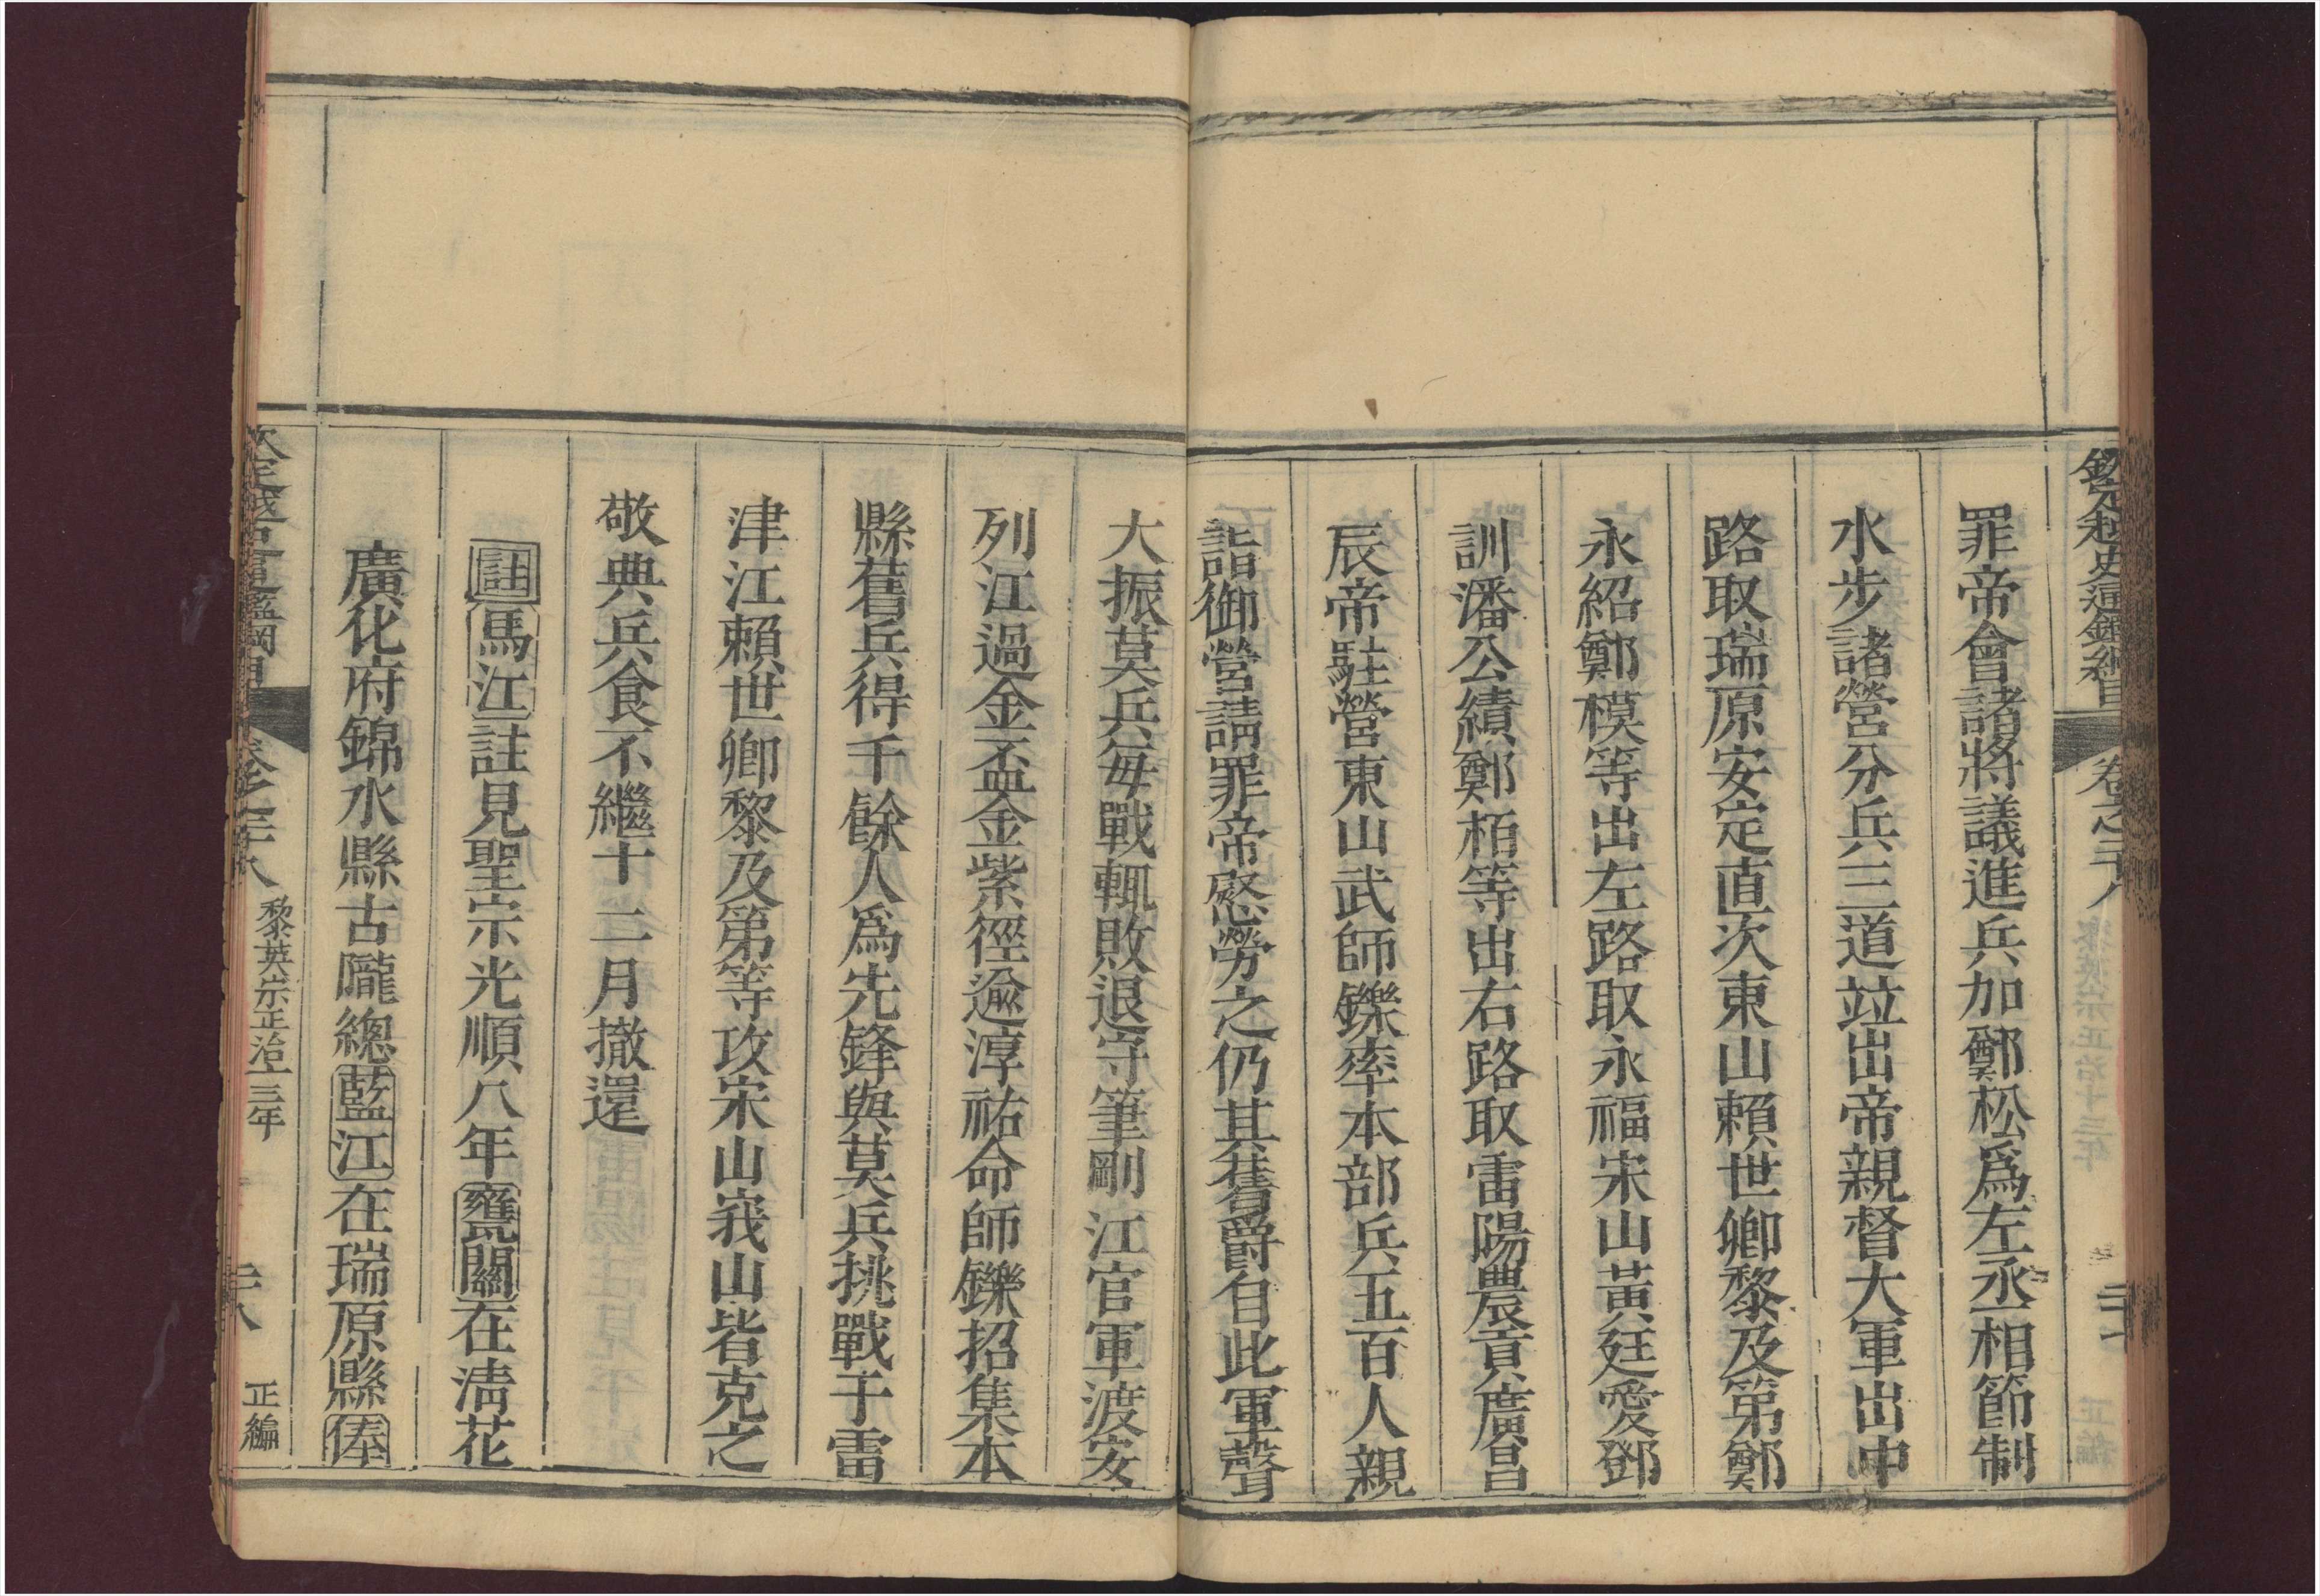 欽定越史通鑑綱目 卷之二十八
罪帝會諸將議進兵加鄭松爲左丞相節制
水步諸營分兵三道竝出帝親督大軍出中
路取瑞原安定直次東山賴世卿黎及第鄭
永紹鄭模等出左路取永福宋山黃廷愛鄧
訓潘公績鄭栢等出右路取雷陽農貢廣昌
辰帝駐營東山武師鑠率本部兵五百人親
詣御營請罪帝慰勞之仍其舊爵自此軍聲
大振莫兵每戰輒敗退守筆剛江官軍渡安
列江過金盃金紫徑逾淳祐命師鑠招集本
縣舊兵得千餘人爲先鋒與莫兵挑戰于雷
津江賴世卿黎及第等攻宋山峩山皆克之
敬典兵食不繼十二月撤還
註馬江註見聖宗光順八年甕關在淸花
廣化府錦水縣古隴總藍江在瑞原縣俸
欽定越史通鑑綱目 卷之二十八 黎英宗正治十三年 二十八 正編